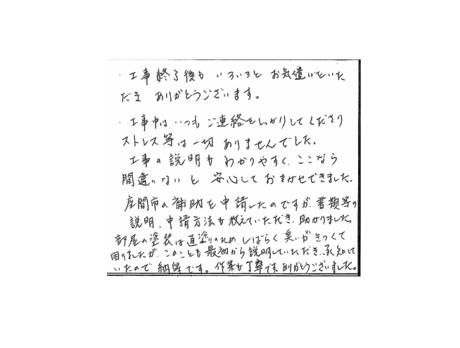 ・工事終了後も いろいろと お気遣いをいた
だき ありがとうございます。
・工事中は いつも ご連絡をしっかりして くださり
ストレス等は一切 ありませんでした。
工事の説明も わかりやすく、ここなら
間違いないと 安心して おまかせできました。
座間市の補助を申請したのですが、書類等の
説明、申請方法も教えていただき、助かりました。
部屋の塗装は直塗りのため、しばらく 臭いが きつくて
困りましたが、このことも最初から説明していただき、承知して
いたので 納得です。作業も丁寧です。ありがとうございました。